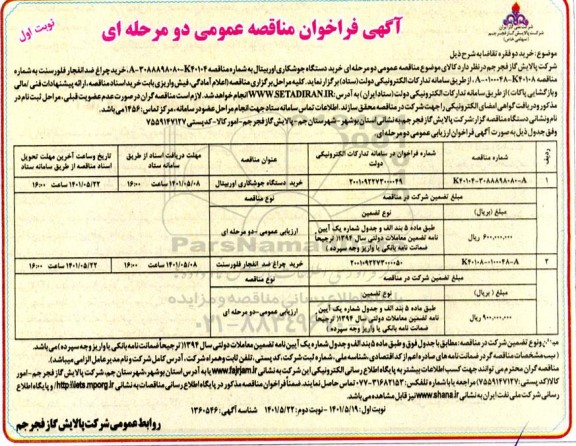 نوبت اول
آگهی فراخوان مناقصه عمومی دو مرحله ای
شرکت ملی گاز ایران
شرکت پالایش گاز فجر جم
(سهامی خاص)
موضوع: خرید دو فقره تقاضا به شرح ذیل
شرکت پالایش گاز فجر جم در نظر دارد کالای موضوع مناقصه عمومی دو مرحله ای خرید دستگاه جوشکاری اوربیتال به شماره مناقصه K۴۰۱۰۴-۳۰۸۸۸۹۸۰۸۰-A، خرید چراغ ضد انفجار فلورسنت به شماره
مناقصه K۴۰۱۰۸-۰۱۰۰۰۴۸-A، از طریق سامانه تدارکات الکترونیکی دولت (ستاد) برگزار نماید. کلیه مراحل برگزاری مناقصه (اعلام آمادگی، فیش واریزی بابت خرید اسناد مناقصه، ارائه پیشنهادات فنی /مالی
و بازگشایی پاکات) از طریق سامانه تدارکات الکترونیکی دولت (ستاد ایران) به آدرس: WWW.SETADIRAN.IR انجام خواهد شد. لازم است مناقصه گران در صورت عدم عضویت قبلی، مراحل ثبت نام در
مذکور و دریافت گواهی امضای الکترونیکی را جهت شرکت در مناقصه محقق سازند. اطلاعات تماس سامانه ستاد جهت انجام مراحل عضویت در سامانه، مرکز تماس: ۱۴۵۶ می باشد.
نام و نشانی دستگاه مناقصه گزار: شرکت پالایش گاز فجر جم به نشانی استان بوشهر - شهرستان جم - پالایش گاز فجر جم - امور کالا - کدپستی ۷۵۵۹۱۴۷۱۲۷
وفق جدول ذیل به صورت آگهی فراخوان ارزیابی عمومی دو مرحله ای
ردیف | شماره مناقصه | شماره فراخوان در سامانه تدارکات الکترونیکی دولت | عنوان مناقصه | مهلت دریافت اسناد از طریق سامانه ستاد | تاریخ و ساعت آخرین مهلت تحویل اسناد مناقصه از طریق سامانه ستاد
۱ | K۴۰۱۰۴-۳۰۸۸۸۹۸۰۸۰-A | ۲۰۰۱۰۹۲۲۷۳۰۰۰۰۴۹ | خرید دستگاه جوشکاری اوربیتال | ۱۴۰۱/۰۵/۰۸ ساعت ۱۶:۰۰ | ۱۴۰۱/۰۵/۲۲ ساعت ۱۶:۰۰
مبلغ تضمین شرکت در مناقصه | نوع مناقصه
مبلغ (ریال) | نوع تضمین
۶۰۰,۰۰۰,۰۰۰ | طبق ماده ۵ بند الف و جدول شماره یک آیین نامه تضمین معاملات دولتی سال ۱۳۹۴ (ترجیحاً ضمانت نامه بانکی یا واریز وجه سپرده) | ارزیابی عمومی - دو مرحله ای
۲ | K۴۰۱۰۸-۰۱۰۰۰۴۸-A | ۲۰۰۱۰۹۲۲۷۳۰۰۰۰۵۰ | خرید چراغ ضد انفجار فلورسنت | ۱۴۰۱/۰۵/۰۸ ساعت ۱۶:۰۰ | ۱۴۰۱/۰۵/۲۲ ساعت ۱۶:۰۰
مبلغ تضمین شرکت در مناقصه | نوع مناقصه
مبلغ (ریال) | نوع تضمین
۹۰۰,۰۰۰,۰۰۰ | طبق ماده ۵ بند الف و جدول شماره یک آیین نامه تضمین معاملات دولتی سال ۱۳۹۴ (ترجیحاً ضمانت نامه بانکی یا واریز وجه سپرده) | ارزیابی عمومی - دو مرحله ای
نوع تضمین شرکت در مناقصه: مطابق با جدول فوق و طبق ماده ۵ بند الف و جدول شماره یک آیین نامه تضمین معاملات دولتی سال ۱۳۹۴ (ترجیحاً ضمانت نامه بانکی یا واریز وجه سپرده) می باشد.
(سپ مشخصات مناقصه گر در ضمانت نامه های صادره اعم از کد اقتصادی، شناسه ملی، شماره ثبت شرکت، کد پستی، تلفن ثابت و همراه شرکت، آدرس کامل شرکت و نام مدیرعامل الزامی میباشد).
مناقصه گران محترم می توانند جهت کسب اطلاعات بیشتر به پایگاه اطلاع رسانی الکترونیکی این شرکت به نشانی www.fajrjam.ir یا به آدرس استان بوشهر، شهرستان جم، شرکت پالایش گاز فجر جم - امور
کالا (کد پستی: ۷۵۵۹۱۴۷۱۲۷) مراجعه یا با شماره تلفکس: ۳۱۶۸۲۱۵۳-۰۷۷ تماس حاصل نمایند. ضمناً فراخوان مناقصه مذکور در پایگاه اطلاع رسانی مناقصات به نشانی http://iets.mporg.ir و پایگاه اطلاع
رسانی شرکت ملی نفت ایران به نشانی www.shana.ir نیز قابل مشاهده می باشد.
نوبت اول: ۱۴۰۱/۵/۱۹ - نوبت دوم: ۱۴۰۱/۵/۲۲ شناسه آگهی: ۱۳۶۰۵۴۶
روابط عمومی شرکت پالایش گاز فجر جم